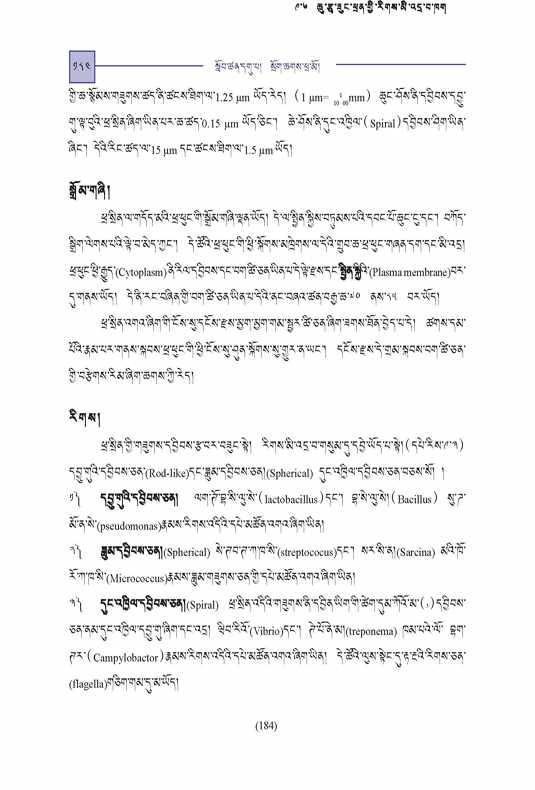 ༩-༦ ཆུ་རྫ་ཟུང་ཕྲན་གྱི་རིགས་མི་འདྲ་བ་ཁག
༡༨༤ སློབ་ཚན་དགུ་པ། སྲོག་ཆགས་ཕྲ་མོ།
གྱི་ཆ་སྙོམས་གཟུགས་ཚད་ནི་ཚངས་ཐིག་ལ་1.25 μm ཡོད་རེད། ( 1 μm= mm) ཆུང་ཤོས་ནི་དབྱིབས་དབྱུ་
གུ་ལྟ་བུའི་ཕྲ་སྲིན་ཞིག་ཡིན་པར་ཆ་ཚད་0.15 μm ཡོད་ཅིང་། ཆེ་ཤོས་ནི་དུང་འཁྱིལ་( Spiral ) དབྱིབས་ཤིག་ཡིན་
ཞིང་། དེའི་རིང་ཚད་ལ་15 μm དང་ཚངས་ཐིག་ལ་1.5 μm ཡོད།
སྒྲོམ་གཞི།
ཕྲ་སྲིན་ལ་གདོད་མའི་ཕྲ་ཕུང་གི་སྒྲོམ་གཞི་ལྡན་ཡོད། དེ་ལ་སྤྲིན་སྐྱིས་བཏུམས་པའི་དབང་པོ་ཆུང་ངུ་དང་། བཀོད་
སྒྲིག་ལེགས་པའི་ལྟེ་བ་མེད་ཀྱང་། དེ་ཚོའི་ཕྲ་ཕུང་གི་ཕྱི་སྐོགས་མཁྲེགས་ལ་དེའི་གྲུབ་ཆ་ཕྲ་ཕུང་གཞན་དག་དང་མི་འདྲ།
ཕྲ་ཕུང་ཕྱི་རྒྱུད་(Cytoplasm)ནི་རིལ་དབྱིབས་དང་བག་ཚི་ཅན་ཡིན་པ་དེ་ལྟེ་རྫས་དང་སྤྲིན་སྐྱིའི་(Plasma membrane)བར་
དུ་གནས་ཡོད། དེ་ནི་རང་བཞིན་གྱི་བག་ཚི་ཅན་ཡིན་པ་དེའི་ནང་བཞའ་ཚན་བརྒྱ་ཆ་༧༠ ནས་༨༥ བར་ཡོད།
ཕྲ་སྲིན་འགའ་ཞིག་གི་ངོས་སུ་དངོས་རྫས་མྱག་མྱག་གམ་སྦྱར་ཚི་ཅན་ཞིག་ཟགས་ཐོན་བྱེད་པ་དེ། ཚགས་དམ་
པོའི་རྣམ་པར་གནས་སྐབས་ཕྲ་ཕུང་གི་ཕྱི་ངོས་སུ་ཤུན་སྐོགས་སུ་གྱུར་ན་ཡང་། དངོས་རྫས་དེ་གྲམ་སྐབས་བག་ཚི་ཅན་
གྱི་བརྩེགས་རིམ་ཞིག་ཆགས་ཀྱི་རེད།
རིགས།
ཕྲ་སྲིན་གྱི་གཟུགས་དབྱིབས་རྩ་བར་བཟུང་སྟེ། རིགས་མི་འདྲ་བ་གསུམ་དུ་དབྱེ་ཡོད་པ་སྟེ། ( དཔེ་རིས་༩་༣ )
དབྱུ་གུའི་དབྱིབས་ཅན་(Rod-like)དང་ཟླུམ་དབྱིབས་ཅན།(Spherical) དུང་འཁྱིལ་དབྱིབས་ཅན་བཅས་སོ། །
༡༽ དབྱུ་གུའི་དབྱིབས་ཅན། ལག་ཊོ་བྷ་སི་ལུ་སེ་( lactobacillus ) དང་། བྷ་སི་ལུ་སེ།( Bacillus ) སུ་ཌ་
མོ་ན་སེ་(pseudomonas)རྣམས་རིགས་འདིའི་དཔེ་མཚོན་འགའ་ཞིག་ཡིན།
༢༽ ཟླུམ་དབྱིབས་ཅན།(Spherical) སེ་ཊེབ་ཊ་ཀཱ་ཁ་སི་(streptococus)དང་། སར་སི་ན།(Sarcina) མའི་ཁོ་
རོ་ཀཱ་ཁ་སི་(Micrococcus)རྣམས་ཟླུམ་གཟུགས་ཅན་གྱི་དཔེ་མཚོན་འགའ་ཞིག་ཡིན།
༣༽ དུང་འཁྱིལ་དབྱིབས་ཅན།(Spiral) ཕྲ་སྲིན་འདིའི་གཟུགས་ནི་དབྱིན་ཡིག་གི་ཚེག་དྲུམ་ཀོའོ་མ་( , ) དབྱིབས་
ཅན་ནམ་དུང་འཁྱིལ་དབྱུ་གུ་ཞིག་དང་འདྲ། ཝིབ་རིའོ་(Vibrio)དང་། ཊེ་པོ་ནེ་མ།(treponema) ཁམ་པའེ་ལོ་ བྷག་
ཊར་ ( Campylobactor ) རྣམས་རིགས་འདིའི་དཔེ་མཚོན་འགའ་ཞིག་ཡིན། དེ་ཚོའི་ལུས་སྟེང་དུ་རྔ་ཇའི་རིགས་ཅན་
(flagella)གཅིག་གམ་དུ་མ་ཡོད།
(184)